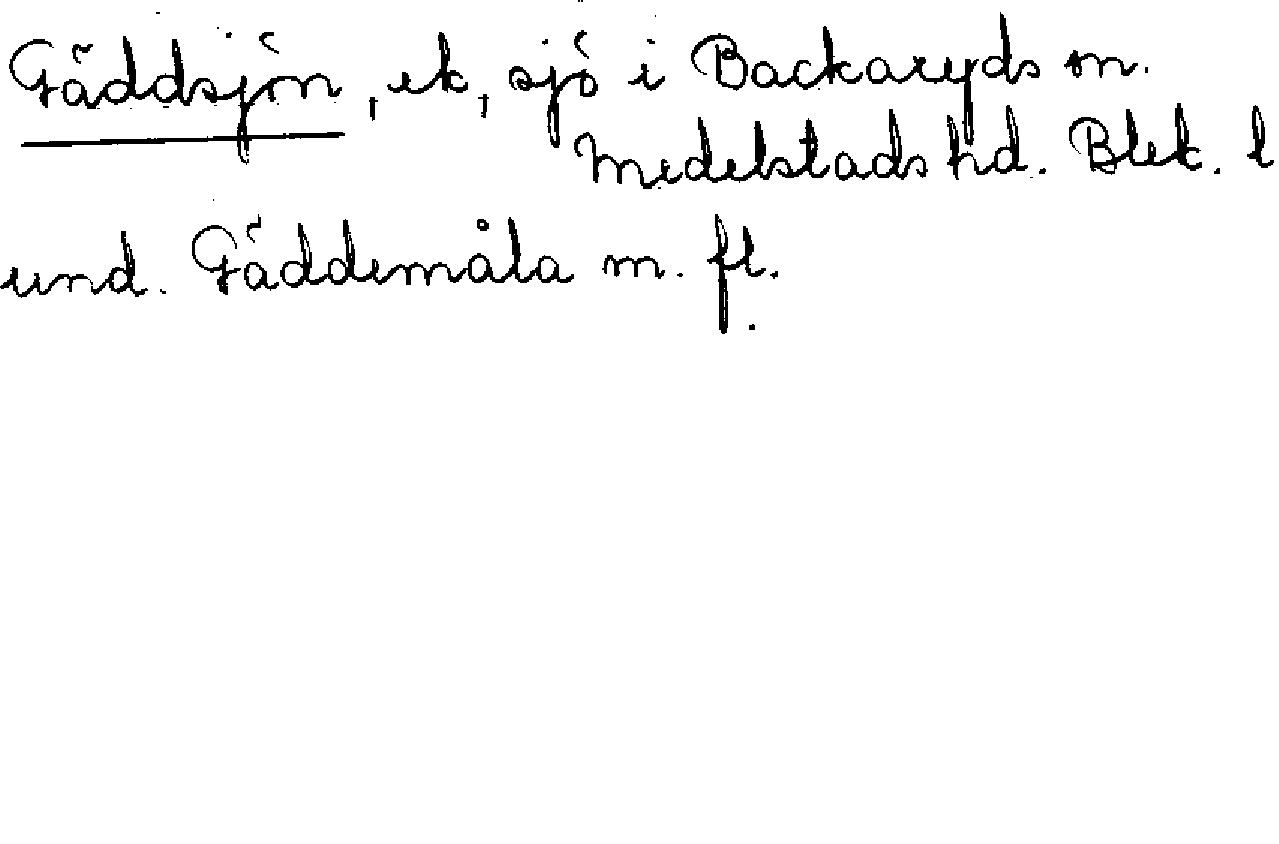 Gäddsjön, ek, sjö i Backaryds sn.
Medelstads hd. Blek. l
und. Gäddemåla m. fl.